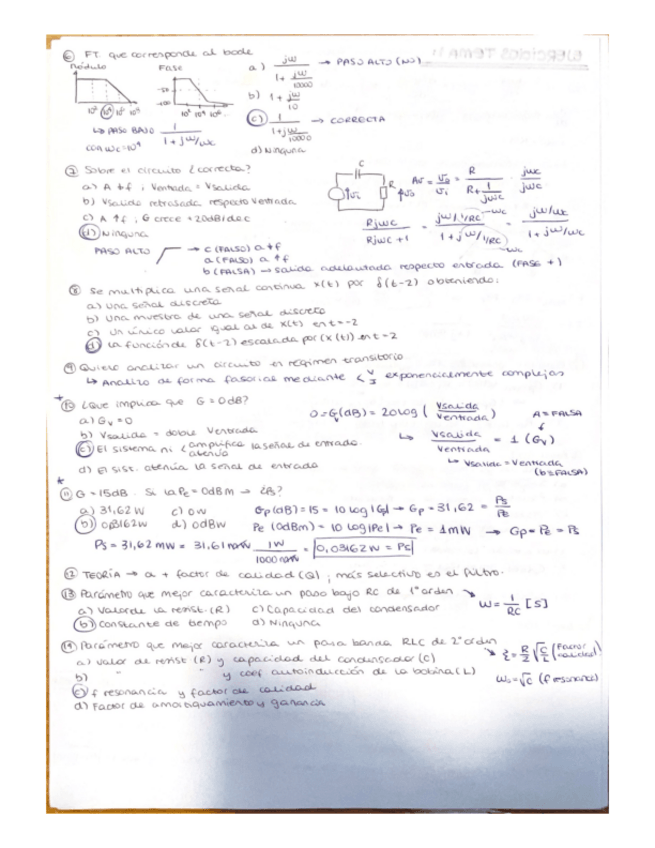 EJERCICIOS TEMA 11
⑥ FT. que corresponde al bode
Módulo Fase
a) jω / 1 + jω/10000 → PASO ALTO (NO)
b) 1 + jω/10
c) 1 / 1 + jω/10000 → CORRECTA
d) Ninguna
↳ PASO BAJO 1 / 1 + jω/ωc
con ωc=10⁴
⑦ Sobre el circuito ¿correcta?
a) A ↑f ; Ventrada = Vsalida
b) Vsalida retrasada respecto Ventrada
c) A ↑f ; G crece +20dB/dec
d) Ninguna
C R
Av = Vo/Vi = R / R + 1/jωC · jωC/jωC
RjωC / RjωC + 1 = jω/1/RC / 1 + jω/1/RC = jω/ωc / 1 + jω/ωc
PASO ALTO → c (FALSO) a ↑f
a (FALSO) a ↑f
b (FALSA) → salida adelantada respecto entrada (FASE +)
⑧ Se multiplica una señal continua x(t) por δ(t-2) obteniendo:
a) Una señal discreta
b) Una muestra de una señal discreta
c) Un único valor igual al de x(t) en t=-2
d) La función δ(t-2) escalada por (x(t)) en t=2
⑨ Quiero analizar un circuito en régimen transitorio
↳ Analizo de forma fasorial mediante < V I exponencialmente complejas
* ⑩ ¿Que implica que G=0dB?
a) Gv=0
b) Vsalida = doble Ventrada
c) El sistema ni < amplifica atenúa la señal de entrada.
d) El sist. atenúa la señal de entrada
0=G(dB) = 20 log ( Vsalida / Ventrada ) A=FALSA
↳ Vsalida / Ventrada = 1 (Gv)
↳ Vsalida = Ventrada
(b=FALSA)
* ⑪ G=15dB. Si la Pe=0dBm → ¿Ps?
a) 31,62W c) 0W
b) 0,03162W d) 0dBW
Gp(dB)=15 = 10 log |Gp| → Gp=31,62 = Ps/Pe
Pe (0dBm) = 10 log |Pe| → Pe = 1mW → Gp·Pe = Ps
Ps = 31,62 mW = 31,61 mW 1W / 1000 mW = 0,03162W = Ps
⑫ TEORÍA → a + factor de calidad (Q) ; más selectivo es el filtro.
⑬ Parámetro que mejor caracteriza un paso bajo RC de 1º orden
a) Valor de la resist. (R) c) Capacidad del condensador
b) Constante de tiempo d) Ninguna
ω = 1/RC [S]
⑭ Parámetro que mejor caracteriza un pasa banda RLC de 2º orden
a) valor de resist (R) y capacidad del condensador (C)
b) " " y coef autoinducción de la bobina (L)
c) f resonancia y factor de calidad
d) Factor de amortiguamiento y ganancia
ξ = R/2 √C/L (Factor calidad)
(f resonancia)